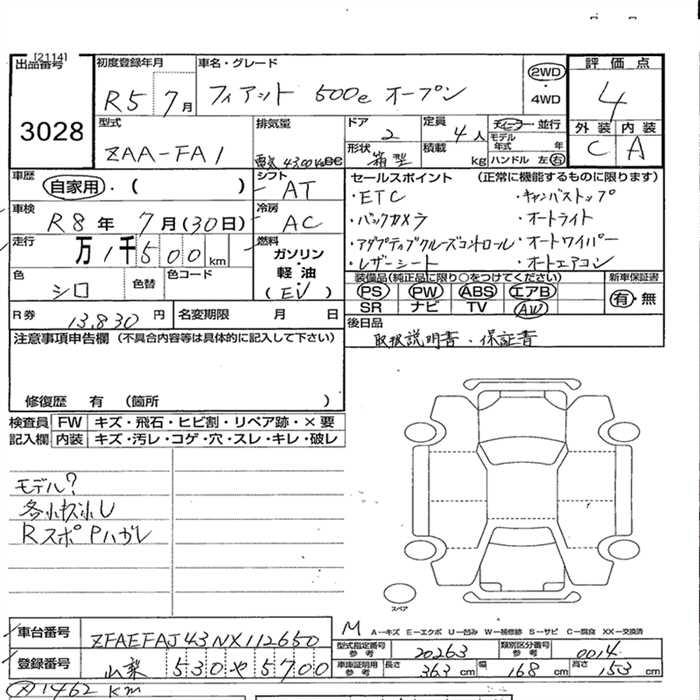 [2114]
出品番号
3028
初度登録年月
R5 7月
車名・グレード
フィアット 500e オープン
2WD
・
4WD
評価点
4
外装 内装
C A
型式
ZAA-FA1
排気量
ドア
2
定員
4人
形状
箱型
積載
kg
ディーラー・並行
モデル
年式 年
ハンドル 左 右
車歴
自家用・( )
シフト
AT
車検
R8年 7月(30日)
冷房
AC
走行
万1千500km
燃料
ガソリン
・
軽油
(EV)
色
シロ
色替
色コード
R券
13,830円
名変期限 月 日
セールスポイント (正常に機能するものに限ります)
・ETC ・キャンバストップ
・バックカメラ ・オートライト
・アダプティブクルーズコントロール ・オートワイパー
・レザーシート ・オートエアコン
装備品(純正品に限り○をつけてください)
PS PW ABS エアB
SR ナビ TV AW
新車保証書
有・無
後日品
取扱説明書・保証書
注意事項申告欄 (不具合内容等は具体的に記入して下さい)
修復歴 有 (箇所 )
検査員
記入欄
FW キズ・飛石・ヒビ割・リペア跡・×要
内装 キズ・汚レ・コゲ・穴・スレ・キレ・破レ
モデル?
各小キズ小U
RスポPハガレ
スペア
車台番号
ZFAEFAJ43NX112650
登録番号
山梨 530 や 5700
M
A－キズ E－エクボ U－凹み W－補修跡 S－サビ C－腐食 XX－交換済
型式指定番号
参考
20263
類別区分番号
参考
0014
車庫証明用
参考
長さ 363cm 幅 168cm 高さ 153cm
1462km